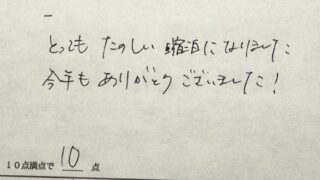 とっても たのしい 縮泊に なりました
今年も ありがとう ございました！
10点満点で 10 点